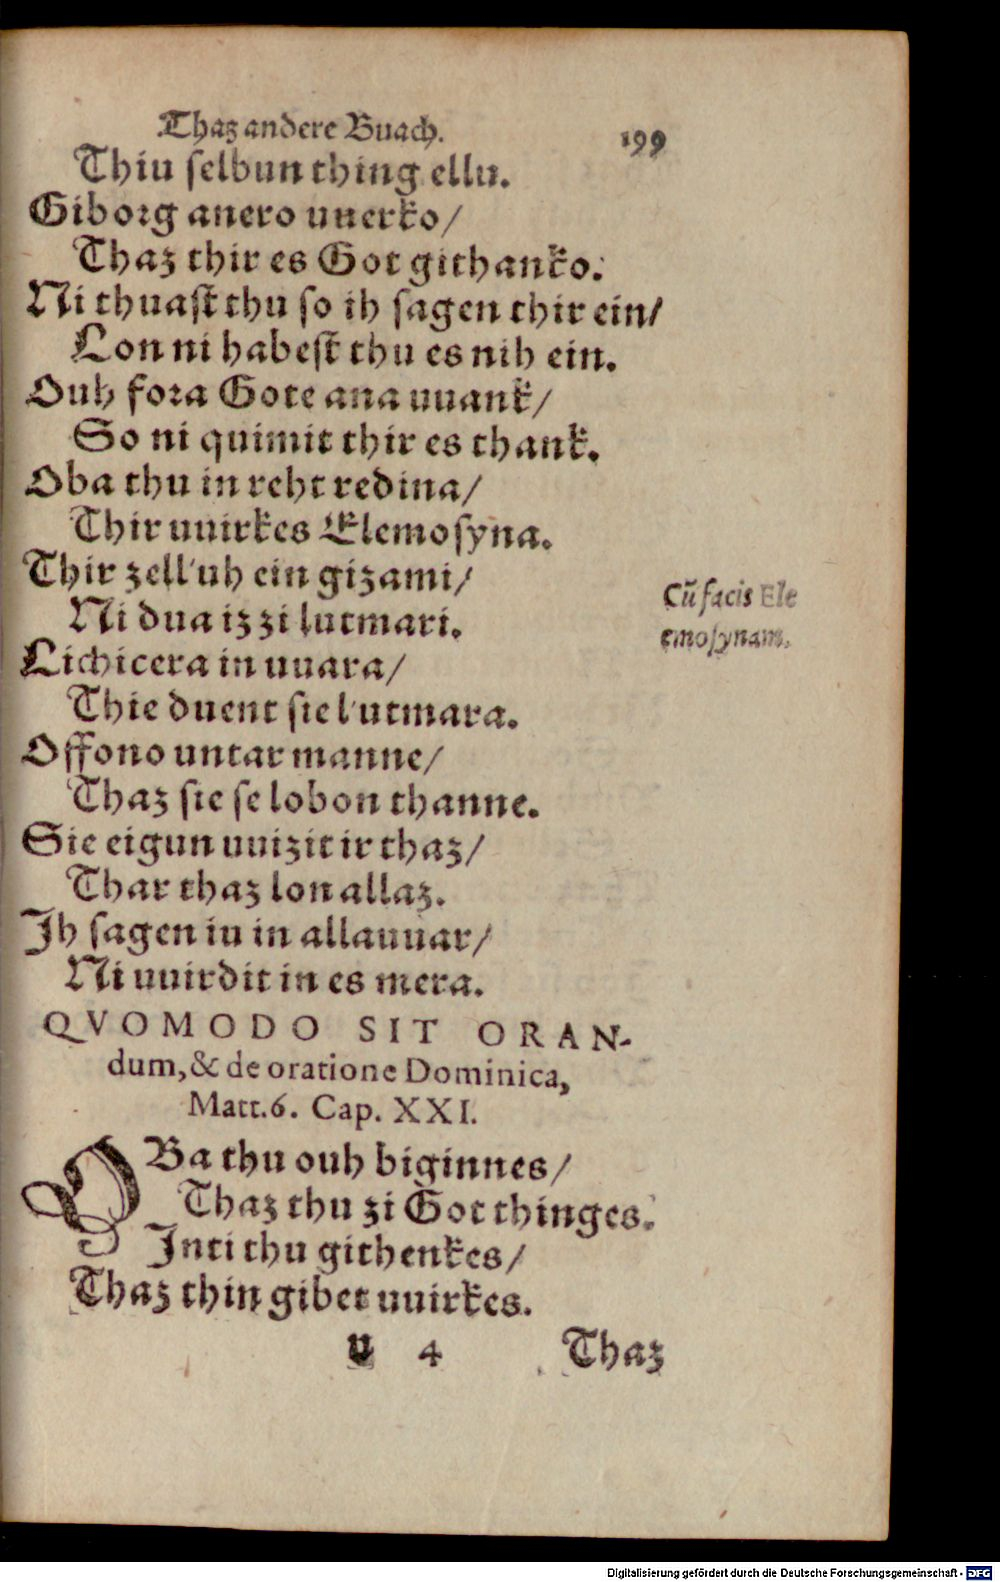 Thaz andere Buach. 199
Thiu ſelbun thing ellu.
Giborg anero uuerko/
Thaz thir es Got githanko.
Ni thuaſt thu so ih ſagen thir ein/
Lon ni habeſt thu es nih ein.
Ouh fora Gote ana uuank/
So ni quimit thir es thank.
Oba thu in reht redina/
Thir uuirkes Elemoſyna.
Thir zell'uh ein gizami/
Ni dua iz zi lutmari.
Lichicera in uuara/
Thie duent ſie l'utmara.
Offono untar manne/
Thaz ſie ſe lobon thanne.
Sie eigun uuizit ir thaz/
Thar thaz lon allaz.
Ih ſagen iu in allauuar/
Ni uuirdit in es mera.
Cũ facis Ele
emoſynam.
QVOMODO SIT ORAN-
dum, & de oratione Dominica,
Matt.6. Cap. XXI.
OBa thu ouh biginnes/
Thaz thu zi Got thinges.
Inti thu githenkes/
Thaz thin gibet uuirkes.
v 4 Thaz
Digitalisierung gefördert durch die Deutsche Forschungsgemeinschaft - DFG